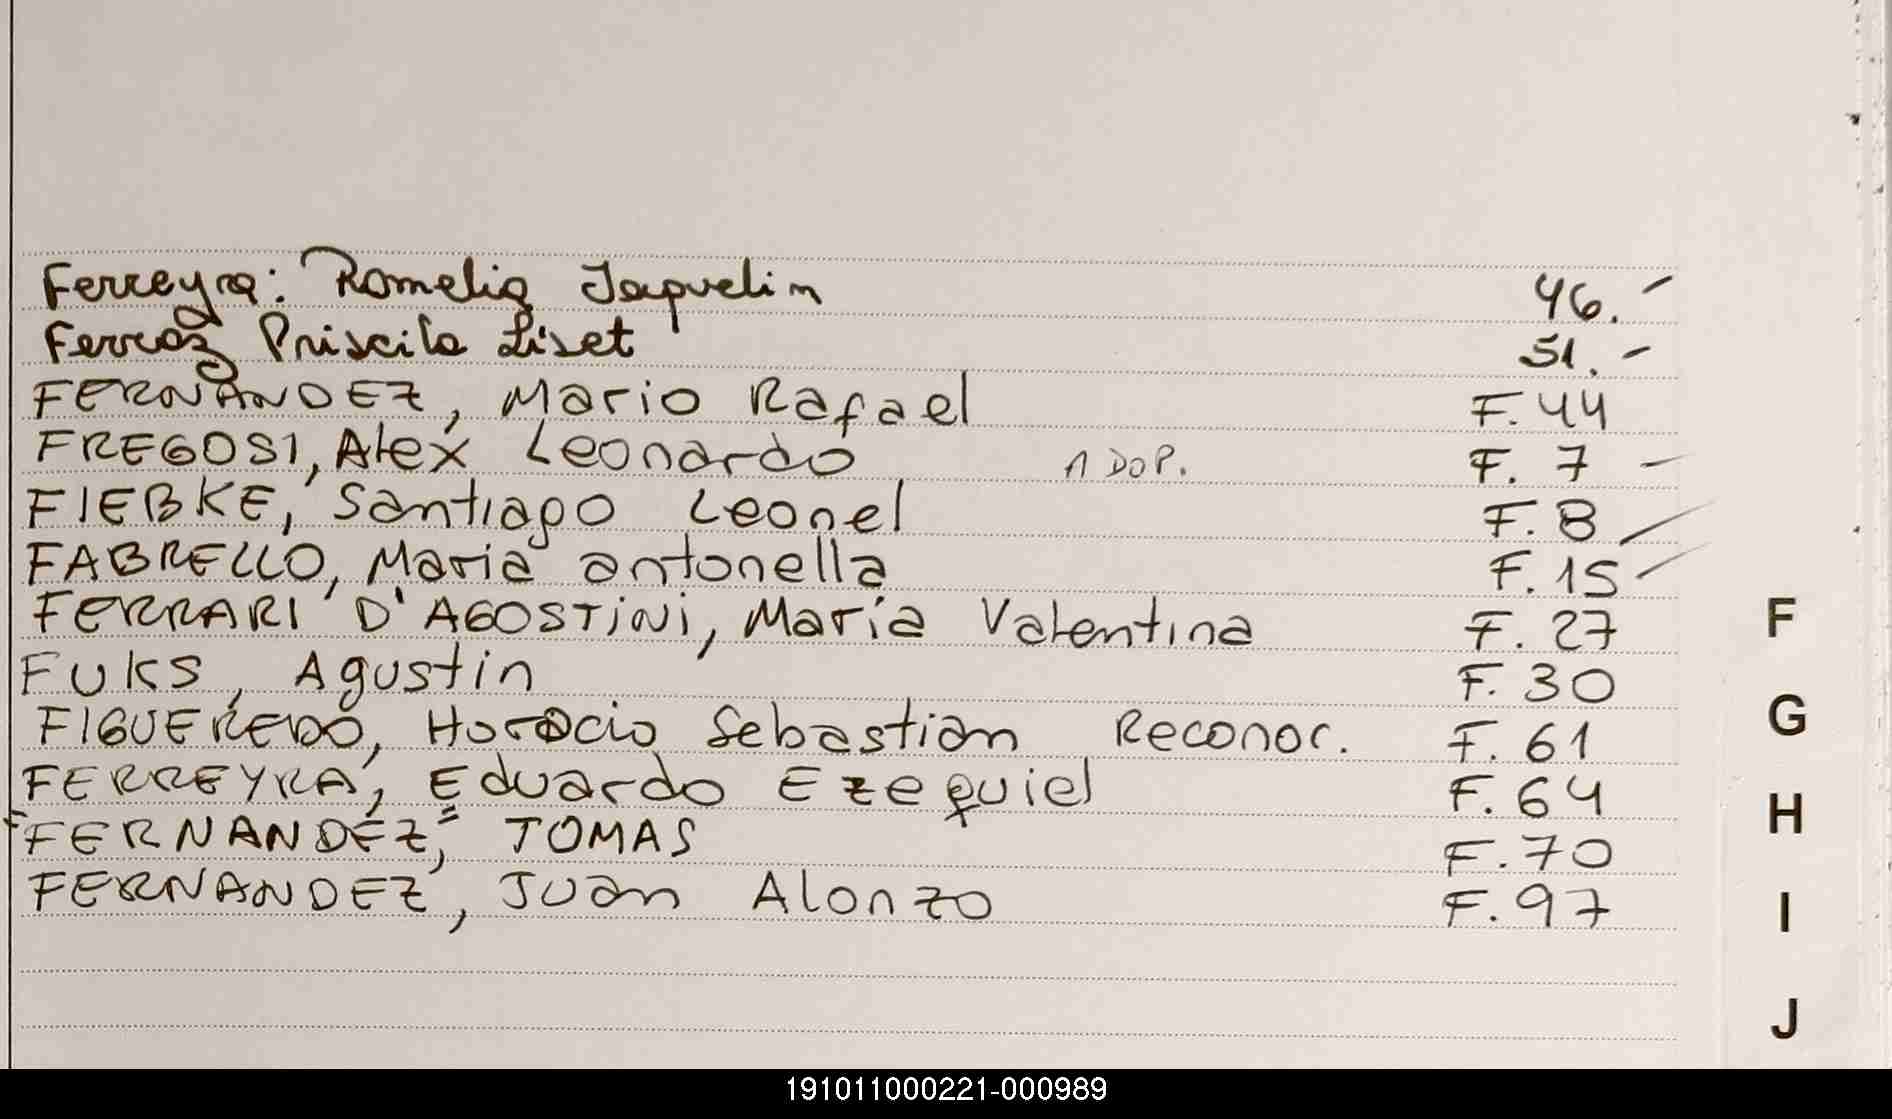 Ferreyra: Romelia Jaquelin 46.-
Ferraz Priscila Liset 51.-
FERNANDEZ, Mario Rafael F. 44
FREGOSI, Alex Leonardo ADOP. F. 7 -
FIEBKE, Santiago Leonel F. 8
FABRELLO, Maria antonella F. 15
FERRARI D'AGOSTiNi, María Valentina F. 27
FUKS, Agustin F. 30
FIGUEREDO, Horacio Sebastian Reconoc. F. 61
FERREYRA, Eduardo Ezequiel F. 64
FERNANDEZ, TOMAS F. 70
FERNANDEZ, Juan Alonzo F. 97
F
G
H
I
J
191011000221-000989